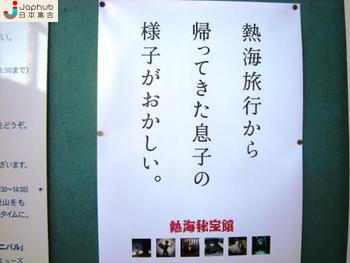 Japhub
日本集合
熱海旅行から
帰ってきた息子の
様子がおかしい。
熱海秘宝館
:30まで)
をどうぞ。
ざいます。
:30~14:30)
山をも
タイムに。
ニバル」
ミューズ